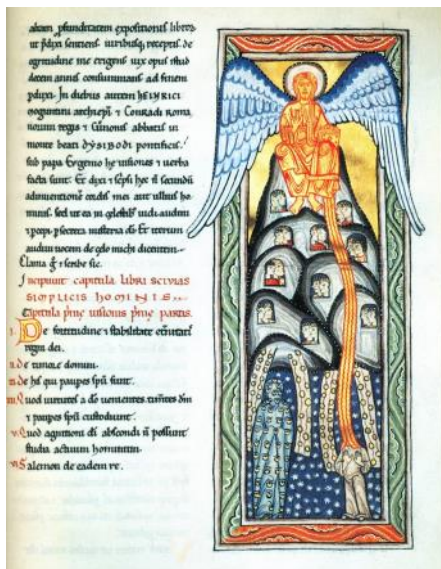 altam ꝓfunditatem expositionis libroꝝ
ut p̄dixi sentiens uiribusq; receptis de
egritudine me erigens uix opus istud
decem annis consummans ad finem
pduxi. In diebus autem HEINRICI
moguntini archiepi ⁊ Conradi roma
noꝝum regis ⁊ Cunonis abbatis in
monte beati DYSIBODI pontificis.
sub papa Eugenio he uisiones ⁊ uerba
facta sunt. Et dixi ⁊ scpsi hec n̄ secundū
adinuentionē cordis mei aut ullius ho
minis. sed ut ea in celestib; uidi audiui
⁊ pcepi p secreta misteria di. Et iterum
audiui uocem de celo michi dicentem.
Clama g̊ ⁊ scribe sic.
Incipiunt capitula libri sciuias
simplicis hominis.
Capitula p̄me uisionis p̄me partis.
i. De fortitudine ⁊ stabilitate etnitatis
regni dei.
ii. de timore domini.
iii. de his qui paupes spū sunt.
iiii. Quod uirtutes a dō uenientes timētes dm̄
⁊ paupes spū custodiunt.
v. Quod agnitioni di abscondi n̄ possunt
studia actuum hominum.
vi. Salemon de eadem re.